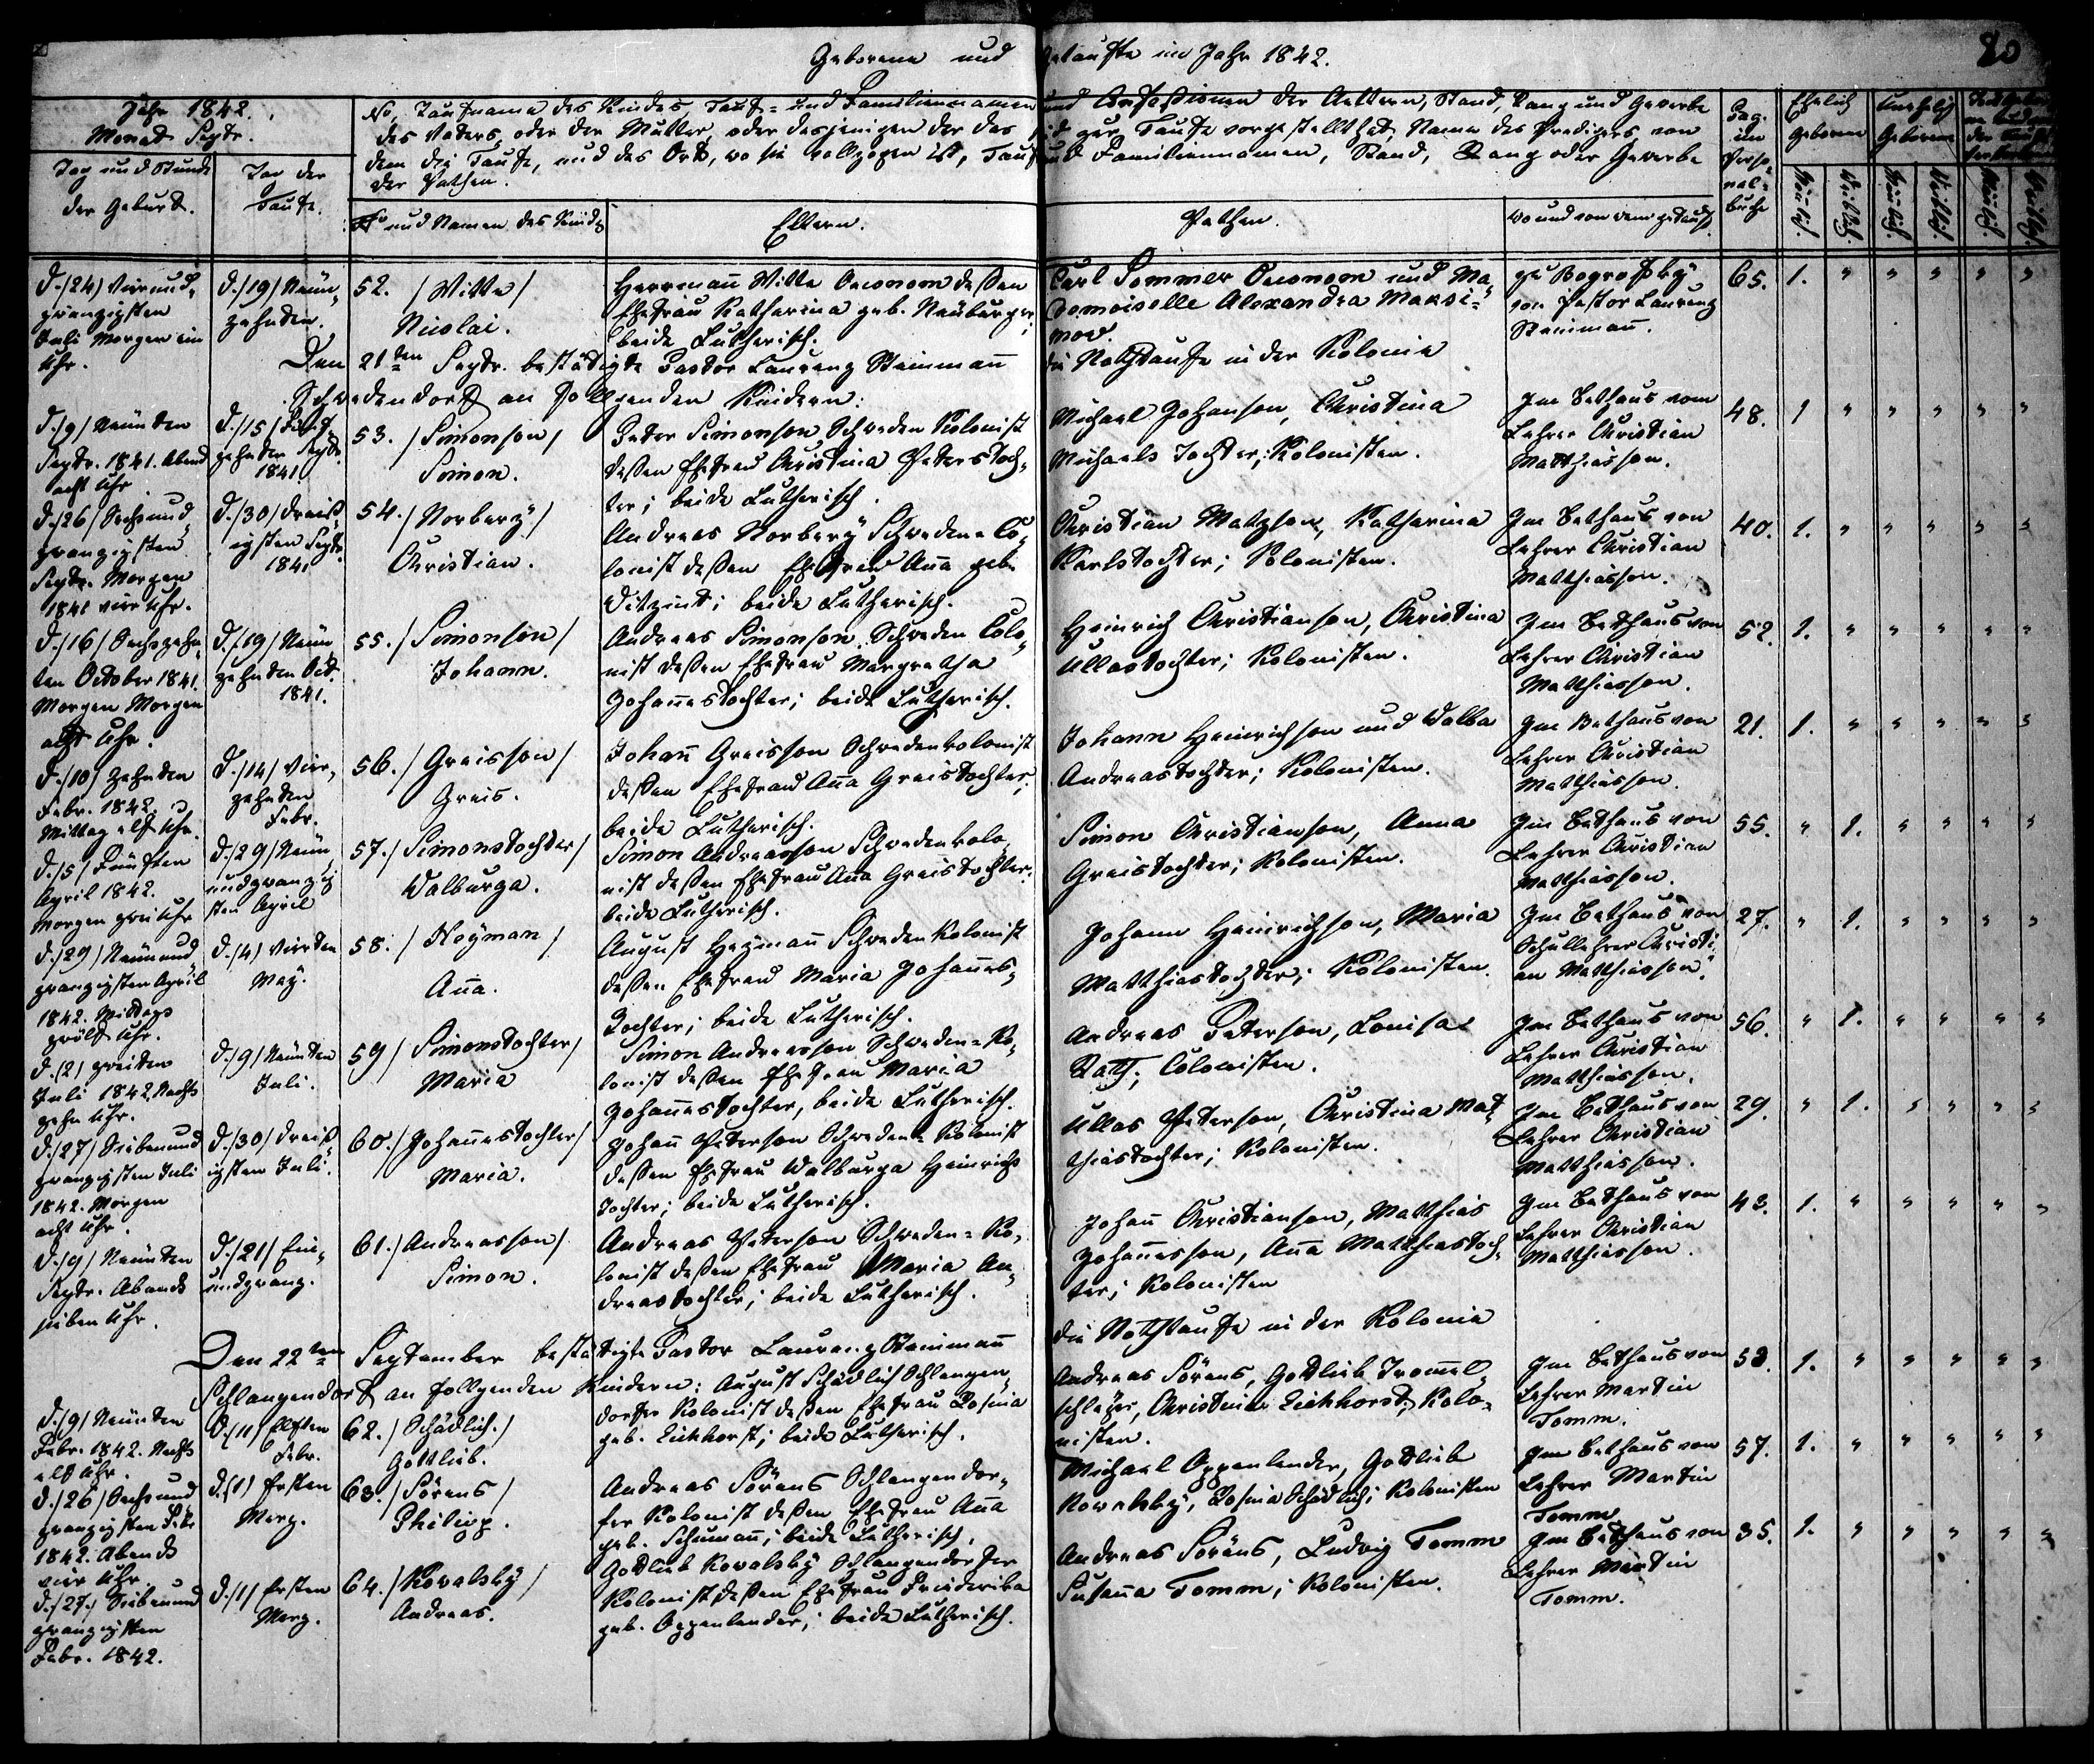 Geborene und Getaufte im Jahr 1842.
20
Jahr 1842.
Monat Septr.
No, Taufname des Kindes Tauf- und Familiennamen und Confessionen der Aeltern, Stand, Rang und Gewerbe
des Vaters, oder der Mutter, oder desjenigen der das Kind zur Taufe vorgestellt hat, Name des Predigers von
dem die Taufe, und des Orts, wo sie vollzogen ist, Tauf und Familiennamen, Stand, Rang oder Gewerbe
der Pathen.
Pag.
im
Perso-
nal-
buche
Ehelich
geboren
Unehelich
Geboren
Tag und Stunde
der Geburt.
Tag der
Taufe.
No und Namen des Kindes
Eltern.
Pathen.
Wo und von wem getauft.
Männlich.
Weiblich.
Männlich.
Weiblich.
Männlich.
Weiblich.
D. /24/ Vierund-
zwanzigsten
Juli Morgen ein
Uhr.
D. /19/ Neun-
zehnden.
52. /Witte/
Nicolai.
Herrmann Witte Oeconom deßen
Ehefrau Katharina geb. Neuburger;
beide Lutherisch.
Carl Sommer Oeconom und Ma-
demoiselle Alexandra Maksi-
mow.
zu Bogrofsky
von Pastor Laurenz
Steinmann.
65. 1. " " " " "
Den 21ten Septr. bestätigte Pastor Laurenz Steinmann die Nothtaufe in der Kolonie
Schwedendorf an folgenden Kindern:
D. /9/ Neunten
Septr. 1841. Abend
acht Uhr
D. /15/ Fünf-
zehnden Septr.
1841.
53. /Simonson/
Simon.
Peter Simonson, Schweden Kolonist
deßen Ehefrau Christina Peterstoch-
ter; beide Lutherisch.
Michael Johanson, Christina
Michaels Tochter; Kolonisten.
Im Bethaus vom
Lehrer Christian
Matthiasson.
48. 1 " " " " "
D. /26/ Sechsund-
zwanzigsten
Septr. Morgen
1841 vier Uhr.
D. /30/ Dreiß-
igsten Septr.
1841
54. /Norberg/
Christian.
Andreas Norberg Schweden-Co-
lonist deßen Ehefrau Anna geb.
; beide Lutherisch.
Christian Matzson, Katharina
Karlstochter; Kolonisten.
Im Bethaus von
Lehrer Christian
Matthiasson.
40. 1. " " " " "
D. /16/ Sechszehn-
ten October 1841.
Morgen Morgen
acht Uhr.
D. /19/ Neun
zehnden Oct.
1841.
55. /Simonson/
Johann.
Andreas Simonson, Schweden Colo-
nist deßen Ehefrau Margretha
Johannestochter; beide Lutherisch.
Heinrich Christianson, Christina
Ullastochter; Kolonisten.
Im Bethaus von
Lehrer Christian
Matthiasson.
52. 1. " " " " "
D. /10/ Zehnden
Febr. 1842.
Mittag elf Uhr.
D. /14/ Vier-
zehnden
Febr.
56. /Greisson/
Greis.
Johann Greisson Schwedenkolonist
deßen Ehefrau Anna Greistochter;
beide Lutherisch.
Johann Heinrichson und Walba
Andreastochter; Kolonisten.
Im Bethaus von
Lehrer Christian
Matthiasson.
21. 1. " " " " "
D. /5/ Fünften
April 1842.
Morgen zwei Uhr
D. /29/ Neun
undzwanzig
sten April
57. /Simonstochter/
Walburga.
Simon Andreasson Schwedenkolo-
nist deßen Ehefrau Anna Greistochter;
beide Lutherisch.
Simon Christianson, Anna
Greistochter; Kolonisten.
Im Bethaus von
Lehrer Christian
Matthiasson.
55. " 1. " " " "
D. /29/ Neunund
zwanzigsten April
1842. Mittags
zwölf Uhr.
D. /4/ Vierten
May.
58. /Hoÿman/
Anna.
August Heymann Schweden Kolonist
deßen Ehefrau Maria Johannes-
Tochter; beide Lutherisch.
Johann Heinrichson, Maria
Matthiastochter; Kolonisten.
Im Bethaus von
Schullehrer Christi-
an Matthiasson.
27. " 1. " " " "
D. /2/ zweiten
Juli 1842 Nachts
zehn Uhr.
D. /9/ Neunten
Juli.
59 /Simonstochter/
Maria
Simon Andreasson Schweden-Ko-
lonist deßen Ehefrau Maria
Johannestochter, beide Lutherisch.
Andreas Peterson, Louisa
Rath; Colonisten.
Im Bethaus von
Lehrer Christian
Matthiasson.
56. " 1. " " " "
D. /27/ Siebenund
zwanzigsten Juli
1842. Morgen
acht Uhr.
D. /30/ Dreiß
igsten Juli.
60. /Johannestochter/
Maria.
Johann Peterson Schweden-Kolonist
deßen Ehefrau Walburga Heinrichs
Tochter; beide Lutherisch.
Ullas Peterson, Christina Mat-
thiastochter; Kolonisten.
Im Bethaus von
Lehrer Christian
Matthiasson.
29. " 1. " " " "
D. /9/ Neunten
Septr. Abends
sieben Uhr.
D. /21/ Ein-
undzwanz.
61. /Andreasson/
Simon.
Andreas Peterson Schweden-Ko-
lonist deßen Ehefrau Maria An-
dreastochter; beide Lutherisch.
Johann Christianson, Matthias
Johannesson, Anna Matthiastoch-
ter; Kolonisten
Im Bethaus von
Lehrer Christian
Matthiasson.
43. 1. " " " " "
Den 22ten September bestätigte Pastor Laurenz Steinmann die Nothtaufe in der Kolonie
Schlangendorf an folgenden Kindern:
D. /9/ Neunten
Febr. 1842. Nachts
elf Uhr.
D. /11/ Elften
Febr.
62. /Schädlich./
Gottlieb.
August Schädlich Schlangen-
dorfer Kolonist deßen Ehefrau Rosina
geb. Eichhorst; beide Lutherisch.
Andreas Sörens, Gottlieb Trommel-
schläger, Christine Eichhorst; Kolo-
nisten.
Im Bethaus von
Lehrer Martin
Tomm.
53. 1. " " " " "
D. /26/ Sechsund
zwanzigsten Febr.
1842. Abends
vier Uhr.
D. /1/ Ersten
Merz.
63. /Sörens/
Philipp.
Andreas Sörens Schlangendor-
fer Kolonist deßen Ehefrau Anna
geb. Schumann; beide Lutherisch.
Michael Oppenlender, Gottlieb
Kowalsky, Rosina Schädlich; Kolonisten
Im Bethaus von
Lehrer Martin
Tomm.
57. 1. " " " " "
D. /27/ Siebenund
zwanzigsten
Febr. 1842.
D. /1/ Ersten
Merz.
64. /Kovalsky/
Andreas.
Gottlieb Kovalsky Schlangendorfer
Kolonist deßen Ehefrau Friederika
geb. Oppenlender; beide Lutherisch.
Andreas Soräns, Ludwig Tomm
Susanna Tomm; Kolonisten.
Im Bethaus von
Lehrer Martin
Tomm.
35. 1. " " " " "